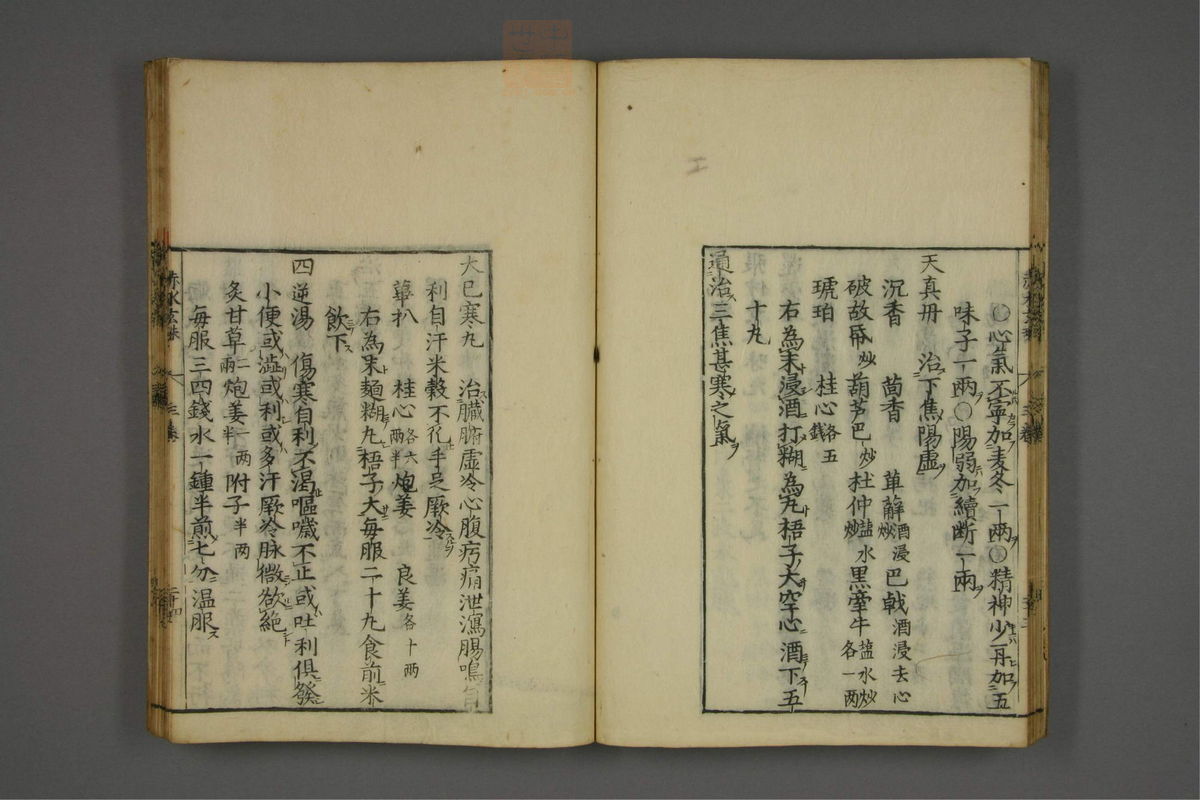 ○心氣不寧加麦冬二兩○精神少再加五
味子一兩○陽弱加續斷一兩
天真丹　治下焦陽虚
沉香　茴香　萆薢酒浸炒巴戟酒浸去心
破故帋炒葫芦巴炒杜仲塩水炒黒牽牛塩水炒各一两
琥珀　桂心各五錢
右為末浸酒打糊為丸梧子大空心酒下五
十丸
通治三焦甚寒之氣
大已寒丸　治臓腑虚冷心腹㽲痛泄瀉腸鳴自
利自汗米穀不化手足厥冷
蓽扒　桂心各六兩半炮姜　良姜各十两
右為末麺糊丸梧子大毎服二十九食前米
飲下
四逆湯　傷寒自利不渇嘔噦不止或吐利俱發
小便或澁或利或多汗厥冷脉微欲絶
炙甘草二兩炮姜一两半附子半两
毎服三四錢水一鍾半煎七分温服